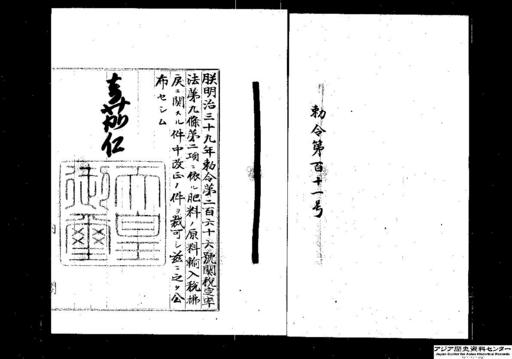 勅令第百十一号
朕明治三十九年勅令第二百六十六號關税定率
法第九條第二項ニ依ル肥料ノ原料輸入税拂
戻ニ關スル件中改正ノ件ヲ裁可シ茲ニ之ヲ公
布セシム
嘉仁
天皇
御璽
アジア歴史資料センター
Japan Center for Asian Historical Records